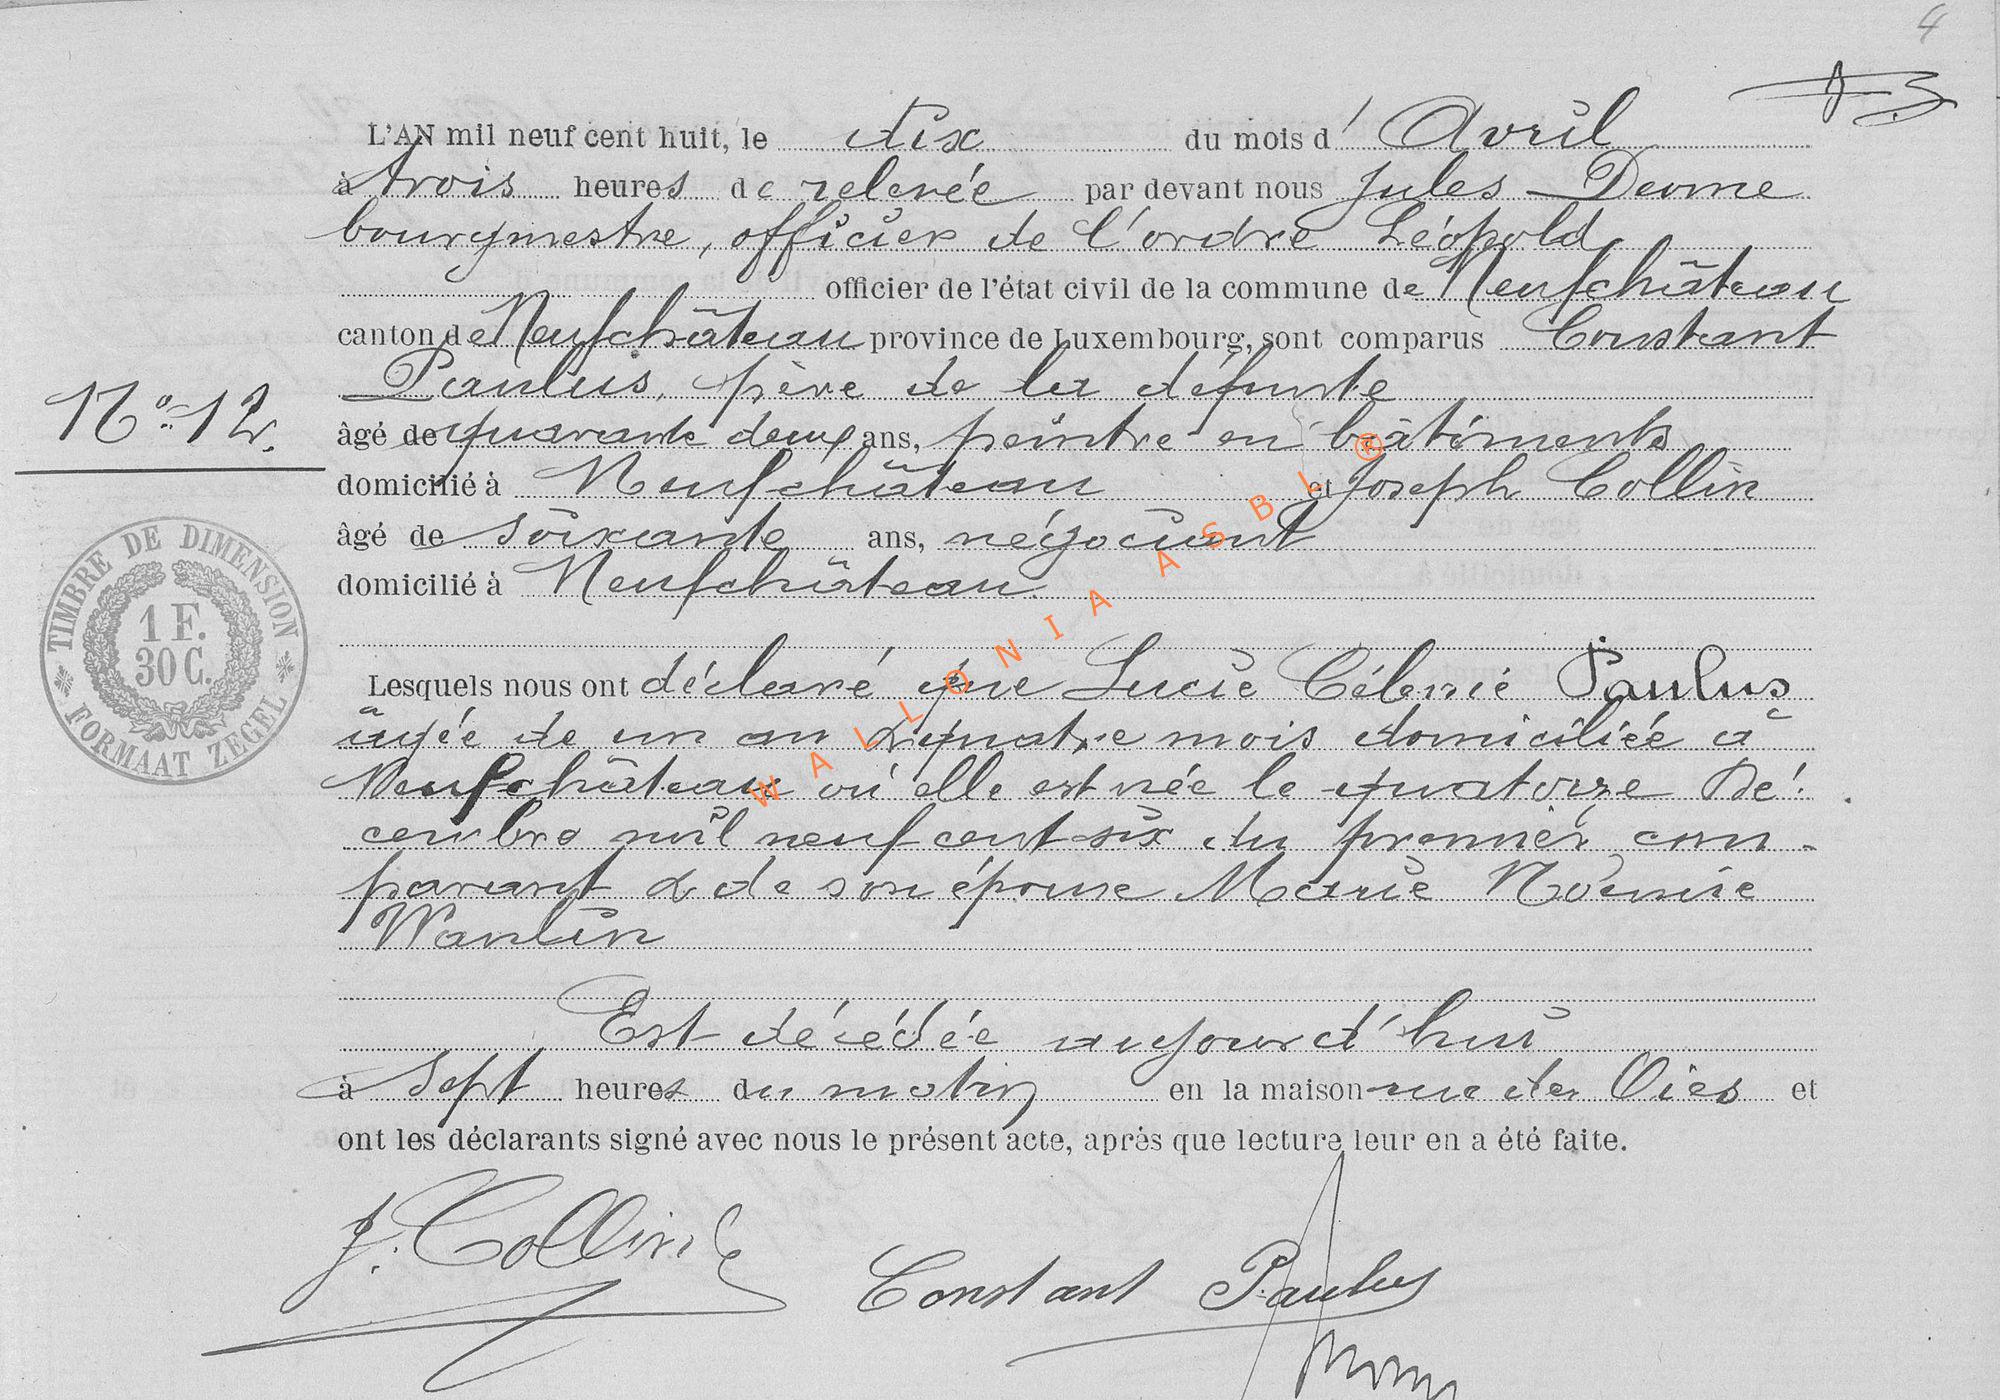 4
L'AN mil neuf cent huit, le dix du mois d' Avril
à trois heures de relevée par devant nous Jules
bourgmestre, officier de l'ordre Léopold
officier de l'état civil de la commune de Neufchâteau
canton de Neufchâteau province de Luxembourg, sont comparus Constant
Paulus, père de la défunte
No. 12.
âgé de quarante deux ans, peintre en bâtiments
domicilié à Neufchâteau et Joseph Collin
âgé de soixante ans, négociant
domicilié à Neufchâteau.
TIMBRE DE DIMENSION
1 F.
30 C.
FORMAAT ZEGEL
Lesquels nous ont déclaré que Lucie Célenie Paulus
âgée de un an & quatre mois domiciliée à
Neufchâteau où elle est née le quatorze Dé-
cembre mil neuf cent six du premier com-
parant & de son épouse Marie Noëmie
Wanlin
Est décédée aujourd'hui
à sept heures du matin en la maison rue des Oies et
ont les déclarants signé avec nous le présent acte, après que lecture leur en a été faite.
J. Collin
Constant Paulus
WALLONIA ASBL ®